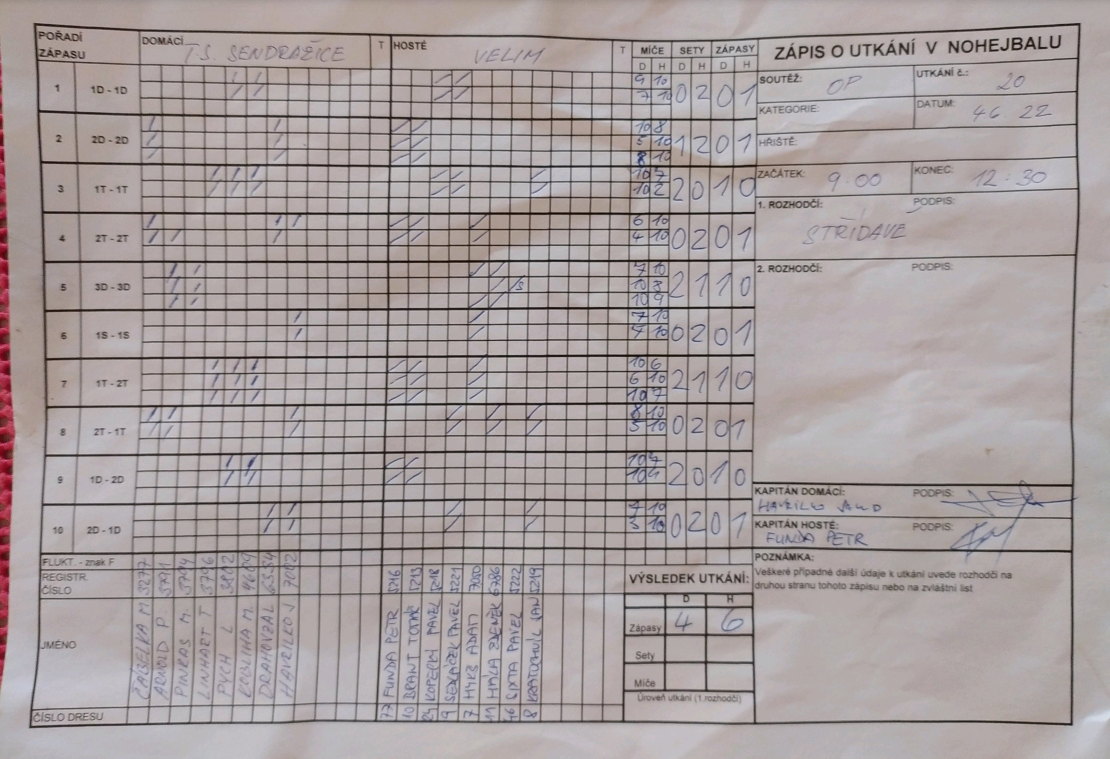 POŘADÍ ZÁPASU DOMÁCÍ T.S. SENDRAŽICE T HOSTÉ VELIM T MÍČE SETY ZÁPASY
D H D H D H
ZÁPIS O UTKÁNÍ V NOHEJBALU
SOUTĚŽ: OP UTKÁNÍ č.: 20
KATEGORIE: DATUM: 4 6 22
HŘIŠTĚ:
ZAČÁTEK: 9:00 KONEC: 12:30
1. ROZHODČÍ: PODPIS:
STŘÍDAVĚ
2. ROZHODČÍ: PODPIS:
1 1D - 1D 9 10 7 10 0 2 0 1
2 2D - 2D 10 8 5 10 8 10 1 2 0 1
3 1T - 1T 10 7 10 2 2 0 1 0
4 2T - 2T 6 10 4 10 0 2 0 1
5 3D - 3D 7 10 10 8 10 9 2 1 1 0
6 1S - 1S 7 10 4 10 0 2 0 1
7 1T - 2T 10 6 6 10 10 7 2 1 1 0
8 2T - 1T 8 10 5 10 0 2 0 1
9 1D - 2D 10 4 2 0 1 0
10 2D - 1D 10 5 10 0 2 0 1
KAPITÁN DOMÁCÍ: PODPIS:
KAPITÁN HOSTÉ: PODPIS:
FUNDA PETR
POZNÁMKA:
Veškeré případné další údaje k utkání uvede rozhodčí na
druhou stranu tohoto zápisu nebo na zvláštní list
FLUKT. - znak F
REGISTR. ČÍSLO
JMÉNO
ČÍSLO DRESU
ARNOLD P. 3791
PINKAS M. 3794
LINHART T 3796
PYCH L 3802
KOBLIHA M. 4609
DRAHOVZAL 6334
HAVRILLO J 7092
77 FUNDA PETR 5216
10 BRANT TOMÁŠ 5213
24 KOPECKÝ PAVEL 5218
9 SEDLÁČEK PAVEL 5221
7 ADAM 7080
11 ZDENĚK 6786
16 SIXTA PAVEL 5222
8 KRATOCHVÍL JAN 5219
VÝSLEDEK UTKÁNÍ:
D H
Zápasy 4 6
Sety
Míče
Úroveň utkání (1.rozhodčí)